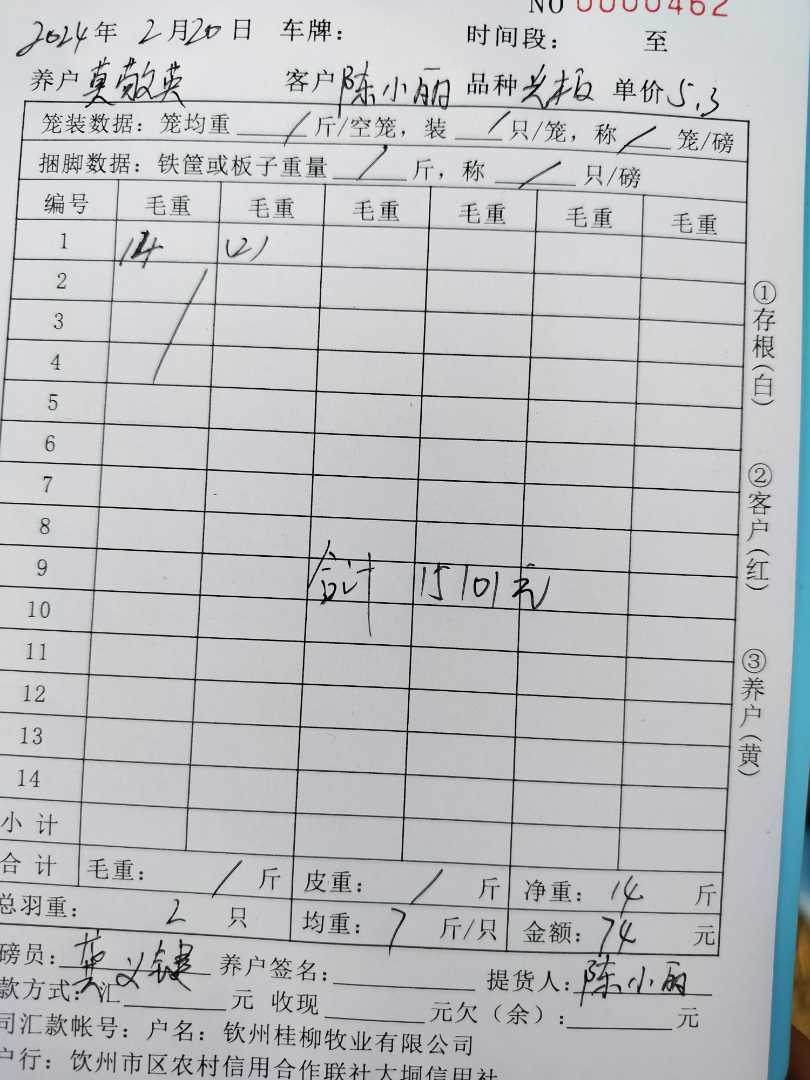 NO 0000462
2024年 2月20日 车牌： 时间段： 至
养户 莫敬英 客户 陈小丽 品种 光板 单价 5.3
笼装数据：笼均重 / 斤/空笼，装 / 只/笼，称 / 笼/磅
捆脚数据：铁筐或板子重量 / 斤，称 / 只/磅
编号 毛重 毛重 毛重 毛重 毛重 毛重
1 14 (2)
2
3
4
5
6
7
8
9 合计 15101元
10
11
12
13
14
小计
合计 毛重： / 斤 皮重： / 斤 净重：14 斤
总羽重： 2 只 均重：7 斤/只 金额：74 元
磅员： 养户签名： 提货人：陈小丽
款方式：汇 元 收现 元欠（余）： 元
司汇款帐号：户名：钦州桂柳牧业有限公司
户行：钦州市区农村信用合作联社大垌信用社
①存根（白） ②客户（红） ③养户（黄）